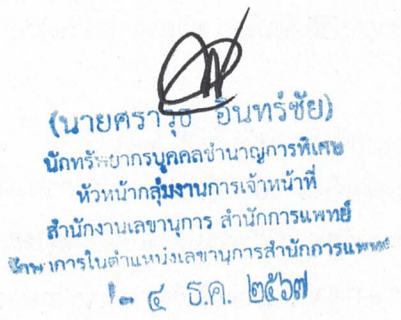 (นายศราวุธ อินทร์ชัย)
นักทรัพยากรบุคคลชำนาญการพิเศษ
หัวหน้ากลุ่มงานการเจ้าหน้าที่
สำนักงานเลขานุการ สำนักการแพทย์
รักษาการในตำแหน่งเลขานุการสำนักการแพทย์
- ๔ ธ.ค. ๒๕๖๗